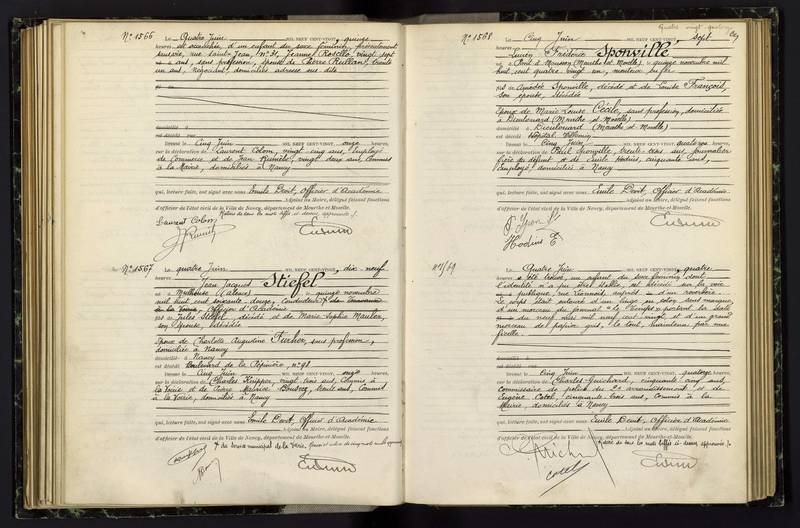 Nº 1566 Le Quatre Juin MIL NEUF CENT-VINGT, quinze
heures, est accouchée, d'un enfant du sexe féminin, présentement
sans vie, rue Saint-Jean, Nº 31, Jeanne Rosello, vingt sept
ans, sans profession, épouse de Pierre Rullan, trente
un ans, négociant, domiciliés adresse sus dite
domicilié à
est décédé
Dressé le Cinq Juin MIL NEUF CENT-VINGT, onze heures
sur la déclaration de Laurent Colom, vingt cinq ans, employé
de Commerce et de Jean vingt deux ans, Commis
à la Mairie, domiciliés à Nancy
qui, lecture faite, ont signé avec nous Emile Devit, Officier d'Académie
Adjoint au Maire, délégué faisant fonctions
d'officier de l'état civil de la Ville de Nancy, département de Meurthe-et-Moselle.
Laurent Colom
Nº 1567 Le quatre Juin MIL NEUF CENT-VINGT, dix neuf
heures, Jean Jacques Stiefel
né à Mulhouse (Alsace) le quinze novembre
mil huit cent soixante-douze, conducteur
de la Voirie, Officier d'Académie
fils de Jules Stiefel, décédé et de Marie Sophie
son épouse, décédée
Epoux de Charlotte Augustine sans profession,
domiciliée à Nancy
domicilié à Nancy
est décédé Boulevard de la Pépinière nº 98
Dressé le Cinq Juin MIL NEUF CENT-VINGT, onze heures
sur la déclaration de Charles vingt trois ans, Commis à
la Voirie et de Pierre Maurice trente ans, Commis
à la Voirie, domiciliés à Nancy
qui, lecture faite, ont signé avec nous Emile Devit, Officier d'Académie
Adjoint au Maire, délégué faisant fonctions
d'officier de l'état civil de la Ville de Nancy, département de Meurthe-et-Moselle.
Nº 1568 Le Cinq Juin MIL NEUF CENT-VINGT, sept
heures, Lucien Frédéric Sponville
né à Pont à Mousson (Meurthe et Moselle) le quinze novembre mil
huit cent quatre vingt un, monteur
fils de Amédée Sponville, décédé et de Louise François,
son épouse, décédée
Epoux de Marie Louise Cécile, sans profession, domiciliée
à Dieulouard (Meurthe et Moselle)
domicilié à Dieulouard (Meurthe et Moselle)
est décédé Hôpital
Dressé le Cinq Juin MIL NEUF CENT-VINGT, quatorze heures
sur la déclaration de Sponville, trente trois ans, journalier
frère du défunt et de Emile Hodius, cinquante ans,
employé, domiciliés à Nancy
qui, lecture faite, ont signé avec nous Emile Devit, Officier d'Académie
Adjoint au Maire, délégué faisant fonctions
d'officier de l'état civil de la Ville de Nancy, département de Meurthe-et-Moselle.
Hodius E
Le Quatre Juin MIL NEUF CENT-VINGT, quatre
heures, a été trouvé, un enfant du sexe féminin dont
l'identité n'a pu être établie, est décédé sur la voie
publique, rue Lionnois, auprès d'un
Le corps était entouré d'un linge en coton sans marque,
et d'un morceau du journal "Le Temps" portant la date
mil neuf cent vingt, et d'un grand
morceau de papier gris, le tout maintenu par une
ficelle
domicilié à
est décédé
Dressé le Cinq Juin MIL NEUF CENT-VINGT, quatorze heures
sur la déclaration de Charles Guichard, cinquante cinq ans,
Commissaire de police du arrondissement et de
Eugène Cotel, cinquante trois ans, Commis à la
Mairie, domiciliés à Nancy
qui, lecture faite, ont signé avec nous Emile Devit, Officier d'Académie
Adjoint au Maire, délégué faisant fonctions
d'officier de l'état civil de la Ville de Nancy, département de Meurthe-et-Moselle.
Cotel